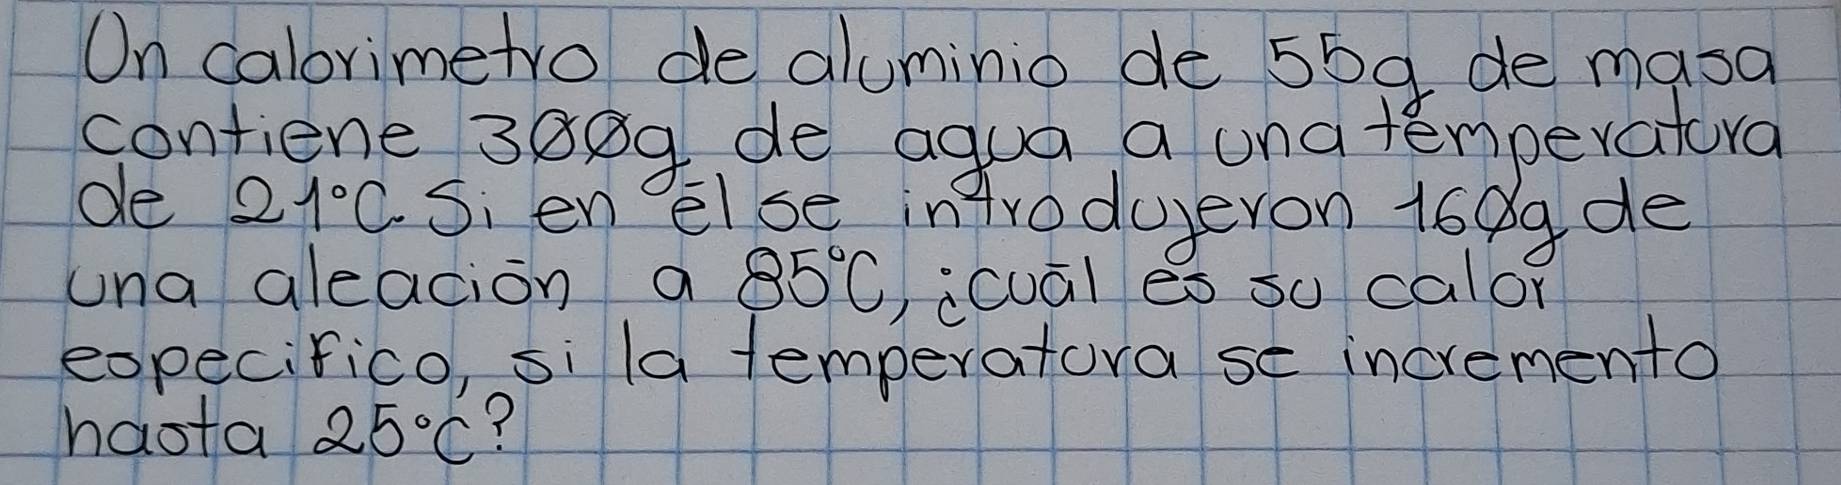 Un calorimetro de aluminio de 55g de masa
contiene 300g de agua a una témperatura
de 21°C. Si en él se introdujeron 160g de
una aleación a 85°C, ¿cuál es su calor
especifico, si la temperatura se incremento
hasta 25°C?